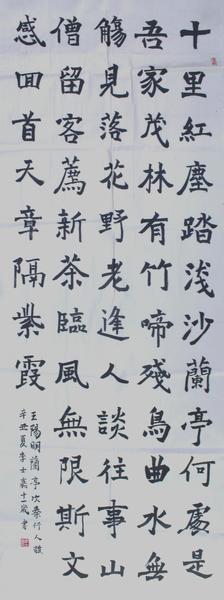 十里紅塵踏淺沙蘭亭何處是
吾家茂林有竹啼殘鳥曲水無
觴見落花野老逢人談往事山
僧留客薦新茶臨風無限斯文
感回首天章隔紫霞
王陽明蘭亭次秦行人韻
辛丑夏李士十一歲書